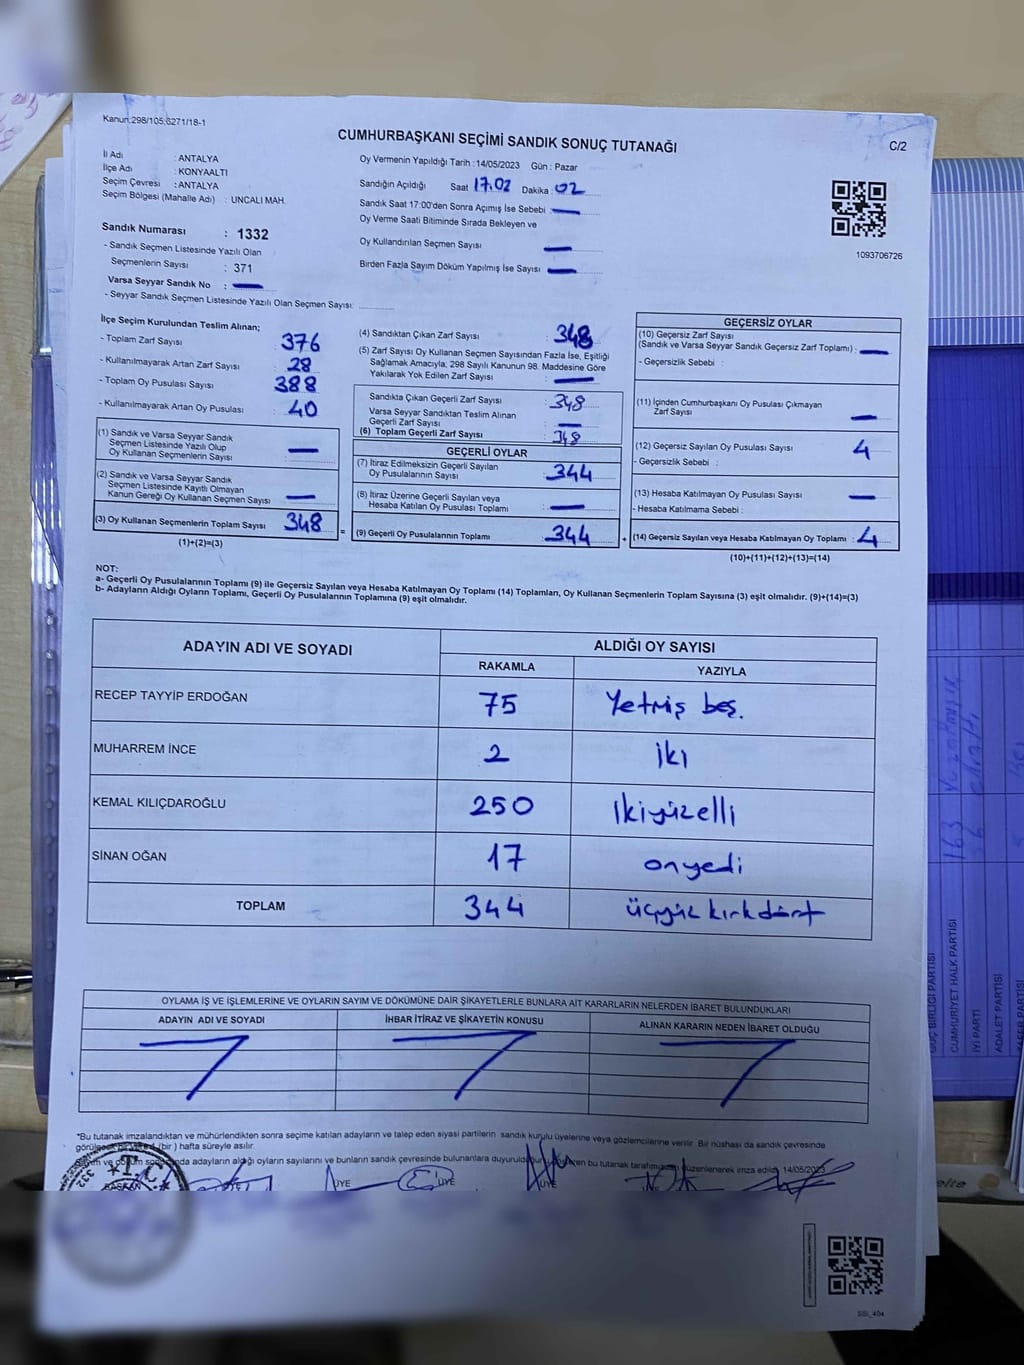 Kanun:298/105;6271/18-1
CUMHURBAŞKANI SEÇİMİ SANDIK SONUÇ TUTANAĞI
C/2
İl Adı : ANTALYA
İlçe Adı : KONYAALTI
Seçim Çevresi : ANTALYA
Seçim Bölgesi (Mahalle Adı) : UNCALI MAH.
Sandık Numarası : 1332
- Sandık Seçmen Listesinde Yazılı Olan
Seçmenlerin Sayısı : 371
Varsa Seyyar Sandık No :
- Seyyar Sandık Seçmen Listesinde Yazılı Olan Seçmen Sayısı:
Oy Vermenin Yapıldığı Tarih : 14/05/2023 Gün : Pazar
Sandığın Açıldığı Saat 17.02 Dakika : 02
Sandık Saat 17:00'den Sonra Açımış İse Sebebi :
Oy Verme Saati Bitiminde Sırada Bekleyen ve
Oy Kullandırılan Seçmen Sayısı
Birden Fazla Sayım Döküm Yapılmış İse Sayısı :
1093706726
İlçe Seçim Kurulundan Teslim Alınan;
- Toplam Zarf Sayısı : 376
- Kullanılmayarak Artan Zarf Sayısı : 28
- Toplam Oy Pusulası Sayısı : 388
- Kullanılmayarak Artan Oy Pusulası : 40
(1) Sandık ve Varsa Seyyar Sandık
Seçmen Listesinde Yazılı Olup
Oy Kullanan Seçmenlerin Sayısı :
(2) Sandık ve Varsa Seyyar Sandık
Seçmen Listesinde Kayıtlı Olmayan
Kanun Gereği Oy Kullanan Seçmen Sayısı :
(3) Oy Kullanan Seçmenlerin Toplam Sayısı : 348
(1)+(2)=(3)
(4) Sandıktan Çıkan Zarf Sayısı : 348
(5) Zarf Sayısı Oy Kullanan Seçmen Sayısından Fazla İse, Eşitliği
Sağlamak Amacıyla; 298 Sayılı Kanunun 98. Maddesine Göre
Yakılarak Yok Edilen Zarf Sayısı :
Sandıkta Çıkan Geçerli Zarf Sayısı : 348
Varsa Seyyar Sandıktan Teslim Alınan
Geçerli Zarf Sayısı :
(6) Toplam Geçerli Zarf Sayısı : 348
GEÇERLİ OYLAR
(7) İtiraz Edilmeksizin Geçerli Sayılan
Oy Pusulalarının Sayısı : 344
(8) İtiraz Üzerine Geçerli Sayılan veya
Hesaba Katılan Oy Pusulası Toplamı :
= (9) Geçerli Oy Pusulalarının Toplamı : 344 +
GEÇERSİZ OYLAR
(10) Geçersiz Zarf Sayısı
(Sandık ve Varsa Seyyar Sandık Geçersiz Zarf Toplamı) :
- Geçersizlik Sebebi :
(11) İçinden Cumhurbaşkanı Oy Pusulası Çıkmayan
Zarf Sayısı :
(12) Geçersiz Sayılan Oy Pusulası Sayısı : 4
- Geçersizlik Sebebi :
(13) Hesaba Katılmayan Oy Pusulası Sayısı :
- Hesaba Katılmama Sebebi :
(14) Geçersiz Sayılan veya Hesaba Katılmayan Oy Toplamı : 4
(10)+(11)+(12)+(13)=(14)
NOT:
a- Geçerli Oy Pusulalarının Toplamı (9) ile Geçersiz Sayılan veya Hesaba Katılmayan Oy Toplamı (14) Toplamları, Oy Kullanan Seçmenlerin Toplam Sayısına (3) eşit olmalıdır. (9)+(14)=(3)
b- Adayların Aldığı Oyların Toplamı, Geçerli Oy Pusulalarının Toplamına (9) eşit olmalıdır.
ADAYIN ADI VE SOYADI
ALDIĞI OY SAYISI
RAKAMLA YAZIYLA
RECEP TAYYİP ERDOĞAN 75 Yetmiş beş.
MUHARREM İNCE 2 iki
KEMAL KILIÇDAROĞLU 250 İkiyüzelli
SİNAN OĞAN 17 onyedi
TOPLAM 344 üçyüz kırkdört
OYLAMA İŞ VE İŞLEMLERİNE VE OYLARIN SAYIM VE DÖKÜMÜNE DAİR ŞİKAYETLERLE BUNLARA AİT KARARLARIN NELERDEN İBARET BULUNDUKLARI
ADAYIN ADI VE SOYADI İHBAR İTİRAZ VE ŞİKAYETİN KONUSU ALINAN KARARIN NEDEN İBARET OLDUĞU
*Bu tutanak imzalandıktan ve mühürlendikten sonra seçime katılan adayların ve talep eden siyasi partilerin sandık kurulu üyelerine veya gözlemcilerine verilir. Bir nüshası da sandık çevresinde
(bir ) hafta süreyle asılır.
adayların aldığı oyların sayılarını ve bunların sandık çevresinde bulunanlara bu tutanak düzenlenerek imza edildi. 14/05/2023
BAŞKAN ÜYE ÜYE ÜYE
332
SBİ_404
163
BİRLİĞİ PARTİSİ
CUMHURİYET HALK PARTİSİ
İYİ PARTİ
ADALET PARTİSİ